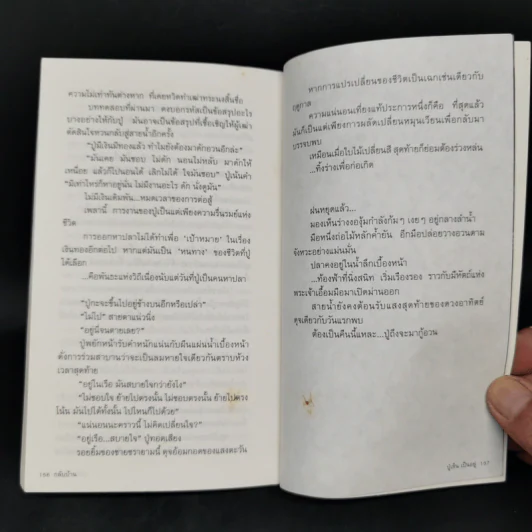 ความไม่เท่าทันต่างหาก ที่เคยหวีดทำเฒ่าทระนงสิ้นชื่อ
บททดสอบที่ผ่านมา คงบอกรหัสเป็นข้อสรุปอะไร
บางอย่างให้กับปู่ มันอาจเป็นข้อสรุปที่เชื้อเชิญให้ผู้เฒ่า
ตัดสินใจหวนกลับสู่สายน้ำอีกครั้ง
"ปู่มีเงินมีทองแล้ว ทำไมยังต้องมาดักอวนอีกล่ะ"
"มันเคย มันชอบ ไม่ดัก นอนไม่หลับ มาดักให้
เหนื่อย แล้วก็ไปนอนได้ เลิกไม่ได้ ใจมันชอบ" ปู่เน้นคำ
"มีเท่าไหร่ก็หาอยู่นั่น ไม่มีงานอะไร ดัก นั่งดูมัน"
ไม่มีเงินเดิมพัน...หมดเวลาของการต่อสู้
เพลานี้ การงานของปู่เป็นแต่เพียงความรื่นรมย์แห่ง
ชีวิต
การออกหาปลาไม่ได้ทำเพื่อ 'เป้าหมาย' ในเรื่อง
เงินทองอีกต่อไป หากแต่มันเป็น 'หนทาง' ของชีวิตที่ปู่
ได้เลือก
...คือพันธะแห่งวิถีเนื่องนับแต่วันที่ปู่เป็นคนหาปลา
"ปู่กะจะขึ้นไปอยู่ข้างบนอีกหรือเปล่า"
"ไม่ไป" สายตาแน่วนิ่ง
"อยู่นี่จนตายเลย?"
ปู่พยักหน้ารับคำหนักแน่นกับผืนแผ่นน้ำเบื้องหน้า
ดังการร่วมสาบานว่าจะเป็นลมหายใจเดียวกันตราบห้วง
เวลาสุดท้าย
"อยู่ในเรือ มันสบายใจกว่ายังไง"
"ไม่ชอบใจ ย้ายไปตรงนั้น ไม่ชอบตรงนั้น ย้ายไปตรง
โน้น มันไปได้ทั้งนั้น ไปไหนก็ไปด้วย"
"แน่นอนนะคราวนี้ ไม่คิดเปลี่ยนใจ?"
"อยู่เรือ...สบายใจ" ปู่ทอดเสียง
รอยยิ้มของชายชรายามนี้ ดุจอ้อมกอดของแสงตะวัน
196 กลับบ้าน
หากการแปรเปลี่ยนของชีวิตเป็นเฉกเช่นเดียวกับ
ฤดูกาล
ความแน่นอนเที่ยงแท้ประการหนึ่งก็คือ ที่สุดแล้ว
มันก็เป็นแต่เพียงการผลัดเปลี่ยนหมุนเวียนเพื่อกลับมา
บรรจบพบ
เหมือนเมื่อใบไม้เปลี่ยนสี สุดท้ายก็ย่อมต้องร่วงหล่น
...ทิ้งร่างเพื่อก่อเกิด
ฝนหยุดแล้ว...
มองเห็นร่างงองุ้มกำลังก้มๆ เงยๆ อยู่กลางลำน้ำ
มือหนึ่งถ่อไม้หลักค้ำยัน อีกมือปล่อยวางอวนตาม
จังหวะอย่างแม่นมั่น
ปลาคงอยู่ในน้ำลึกเบื้องหน้า
...ท้องฟ้าที่นิ่งสนิท เริ่มเรืองรอง ราวกับมีหัตถ์แห่ง
พระเจ้าเอื้อมมือมาเปิดม่านออก
สายน้ำยังคงต้อนรับแสงสุดท้ายของดวงอาทิตย์
ดุจเดียวกับวันแรกพบ
ต้องเป็นคืนนี้แหละ...ปู่ถึงจะมากู้อวน
197